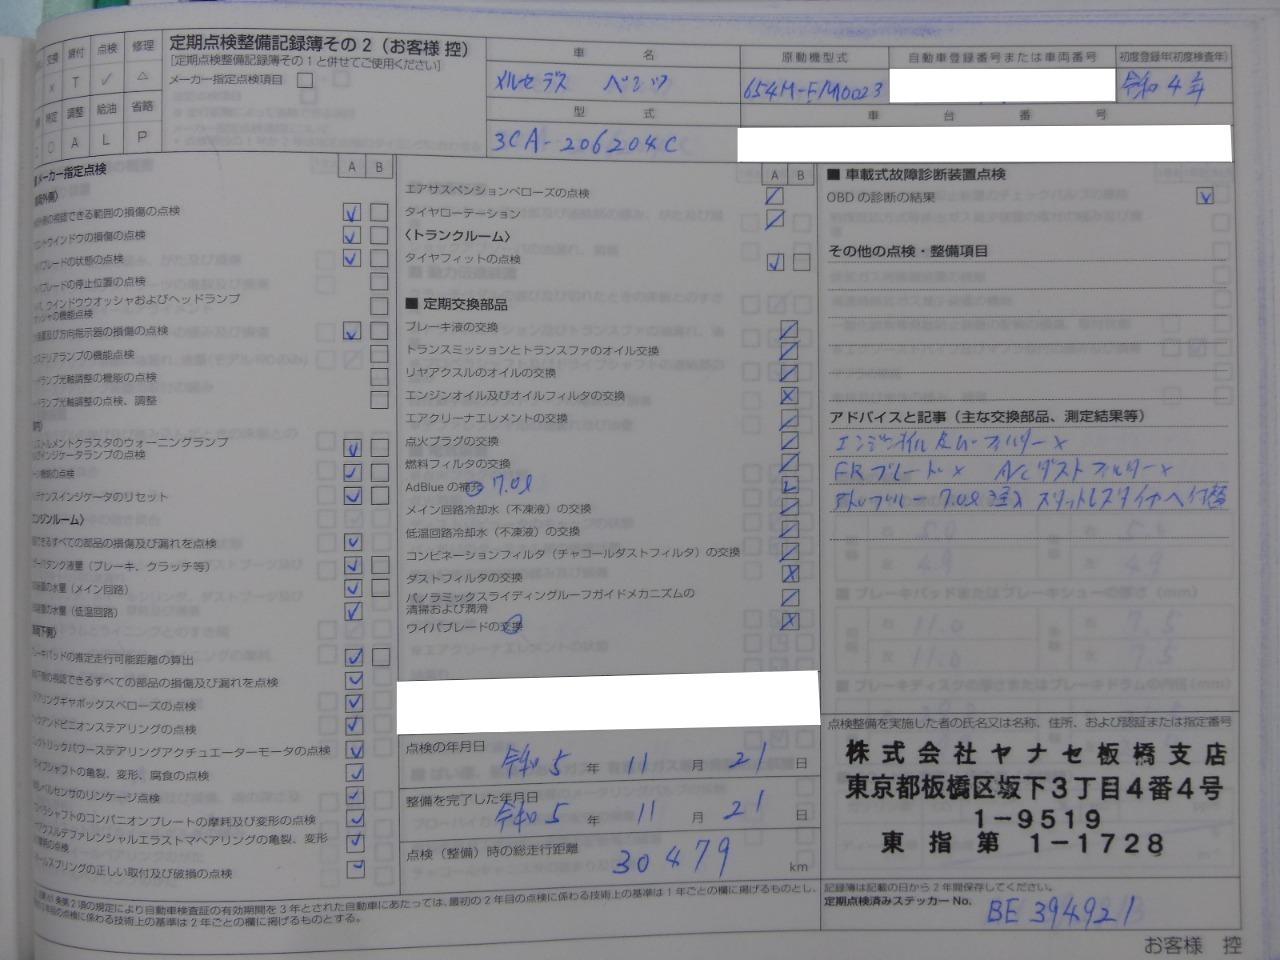 定期点検整備記録簿その2（お客様 控）
[定期点検整備記録簿その1と併せてご使用ください]
メーカー指定点検項目
交換 締付 点検 修理
× T ✓ △
特定 調整 給油 省略
A L P
車 名
メルセデス ベンツ
原動機型式
654M-FM0023
自動車登録番号または車両番号
初度登録年(初度検査年)
令和4年
型 式
3CA-206204C
車 台 番 号
メーカー指定点検
A B
視認できる範囲の損傷の点検
ウインドウの損傷の点検
ブレードの状態の点検
ブレードの停止位置の点検
ウインドウウオッシャおよびヘッドランプ
の機能点検
及び方向指示器の損傷の点検
ランプの機能点検
ランプ光軸調整の機能の点検
ランプ光軸調整の点検、調整
メントクラスタのウォーニングランプ
インジケータランプの点検
機能の点検
テナンスインジケータのリセット
エンジンルーム〉
できるすべての部品の損傷及び漏れを点検
タンク液量（ブレーキ、クラッチ等）
の水量（メイン回路）
の水量（低温回路）
ブレーキパッドの推定走行可能距離の算出
の視認できるすべての部品の損傷及び漏れを点検
ステアリングギヤボックスベローズの点検
ラックアンドピニオンステアリングの点検
エレクトリックパワーステアリングアクチュエーターモータの点検
ドライブシャフトの亀裂、変形、腐食の点検
レベルセンサのリンケージ点検
プロペラシャフトのコンパニオンプレートの摩耗及び変形の点検
アクスルデファレンシャルエラストマベアリングの亀裂、変形
の点検
コイルスプリングの正しい取付及び破損の点検
A B
エアサスペンションベローズの点検
タイヤローテーション
〈トランクルーム〉
タイヤフィットの点検
■ 定期交換部品
ブレーキ液の交換
トランスミッションとトランスファのオイル交換
リヤアクスルのオイルの交換
エンジンオイル及びオイルフィルタの交換
エアクリーナエレメントの交換
点火プラグの交換
燃料フィルタの交換
AdBlue の補充 7.0ℓ
メイン回路冷却水（不凍液）の交換
低温回路冷却水（不凍液）の交換
コンビネーションフィルタ（チャコールダストフィルタ）の交換
ダストフィルタの交換
パノラミックスライディングルーフガイドメカニズムの
清掃および潤滑
ワイパブレードの交換
点検の年月日
令和 5 年 11 月 21 日
整備を完了した年月日
令和 5 年 11 月 21 日
点検（整備）時の総走行距離
30479 km
■ 車載式故障診断装置点検
OBD の診断の結果
その他の点検・整備項目
アドバイスと記事（主な交換部品、測定結果等）
エンジンオイル及びフィルター×
FRブレード× A/Cダストフィルター×
アドブルー 7.0ℓ注入 スタットレスタイヤへ付替
点検整備を実施した者の氏名又は名称、住所、および認証または指定番号
株式会社ヤナセ板橋支店
東京都板橋区坂下3丁目4番4号
1-9519
東 指 第 1-1728
記録簿は記載の日から2年間保存してください。
定期点検済みステッカー No.
BE 394921
第2項の規定により自動車検査証の有効期間を3年とされた自動車にあたっては、最初の2年目の点検に係わる技術上の基準は1年ごとの欄に掲げるものとし、
年目の点検に係わる技術上の基準は2年ごとの欄に掲げるものとする。
お客様 控